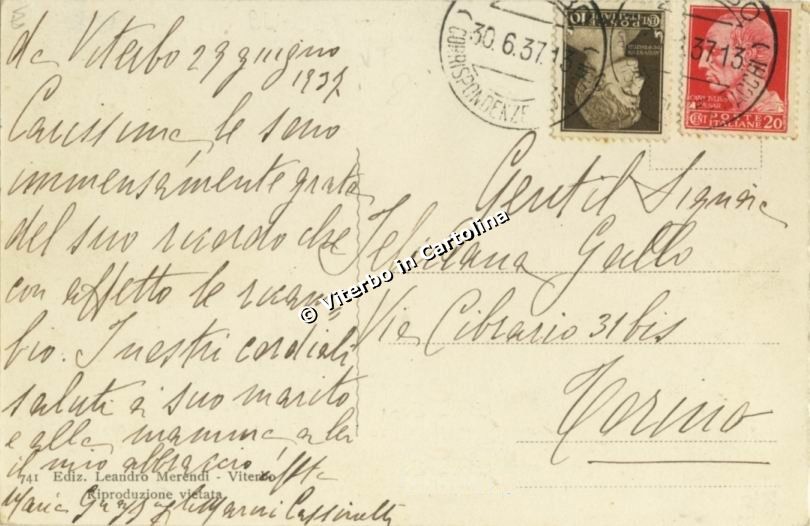 da Viterbo 29 giugno
1937
Carissima, le sono
immensamente grata
del suo ricordo che
con affetto le ricam-
bio. I nostri cordiali
saluti a suo marito
e alla mamma, a lei
il mio abbraccio aff.
Maria
741 Ediz. Leandro Merendi - Viterbo
Riproduzione vietata
30.6.37.13
CORRISPONDENZE
CENT 10
POSTE ITALIANE
37.13
CENT 20
POSTE ITALIANE
Gentil Signora
Gallo
Via Cibrario 31 bis
Torino
© Viterbo in Cartolina